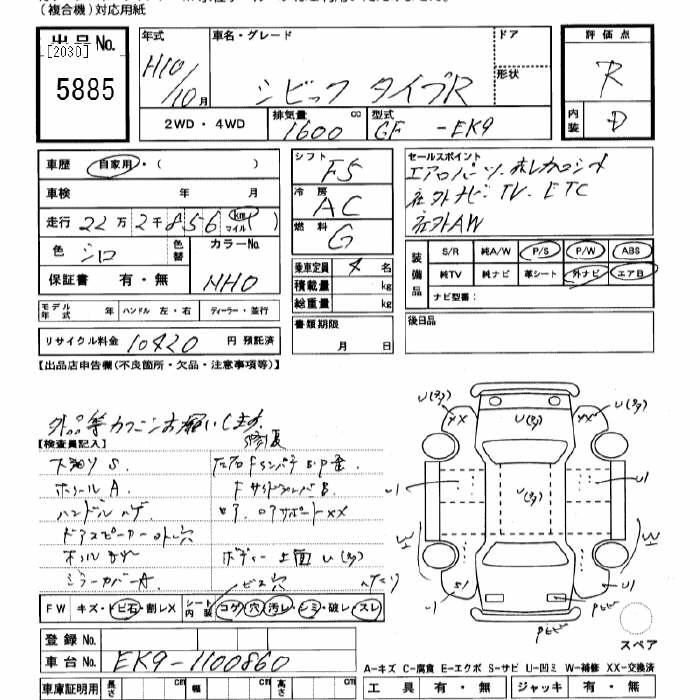 (複合機)対応用紙
出品No.
[2030]
5885
年式
H10/10月
車名・グレード
シビック タイプR
ドア
形状
2WD・4WD
排気量
1600
cc
型式
GF -EK9
評価点
R
内装
D
車歴
自家用・( )
車検 年 月
走行 22万2千856 (km マイル)
色
シロ
色替
カラーNo.
NH0
保証書 有・無
モデル年式 年 ハンドル 左・右 ディーラー・並行
リサイクル料金 10420 円 預託済
シフト
F5
冷房
AC
燃料
G
乗車定員 4 名
積載量 kg
総重量 kg
書類期限
月 日
セールスポイント
エアロパーツ・
社外ナビ・TV・ETC
社外AW
装備品
S/R 純A/W P/S P/W ABS
純TV 純ナビ 革シート 外ナビ エアB
ナビ型番:
後日品
【出品店申告欄(不良箇所・欠品・注意事項等)】
外品等カクニンお願いします
【検査員記入】
ホイールA
ハンドルハゲ
ドアスピーカー
ミラーカバーA
ボディー上面U(多)
ビス穴
U(多)
XX
U(多)
U(多)
U(多)
XX
U1
U1
W1
W1
S1
U1
FW キズ・トビ石・割レX
シート内装
コゲ・穴・汚レ・シミ・破レ・スレ
登録No.
車台No. EK9-1100860
車庫証明用 長さ cm 幅 cm 高さ cm
スペア
A-キズ C-腐食 E-エクボ S-サビ U-凹ミ W-補修 XX-交換済
工具 有・無 ジャッキ 有・無